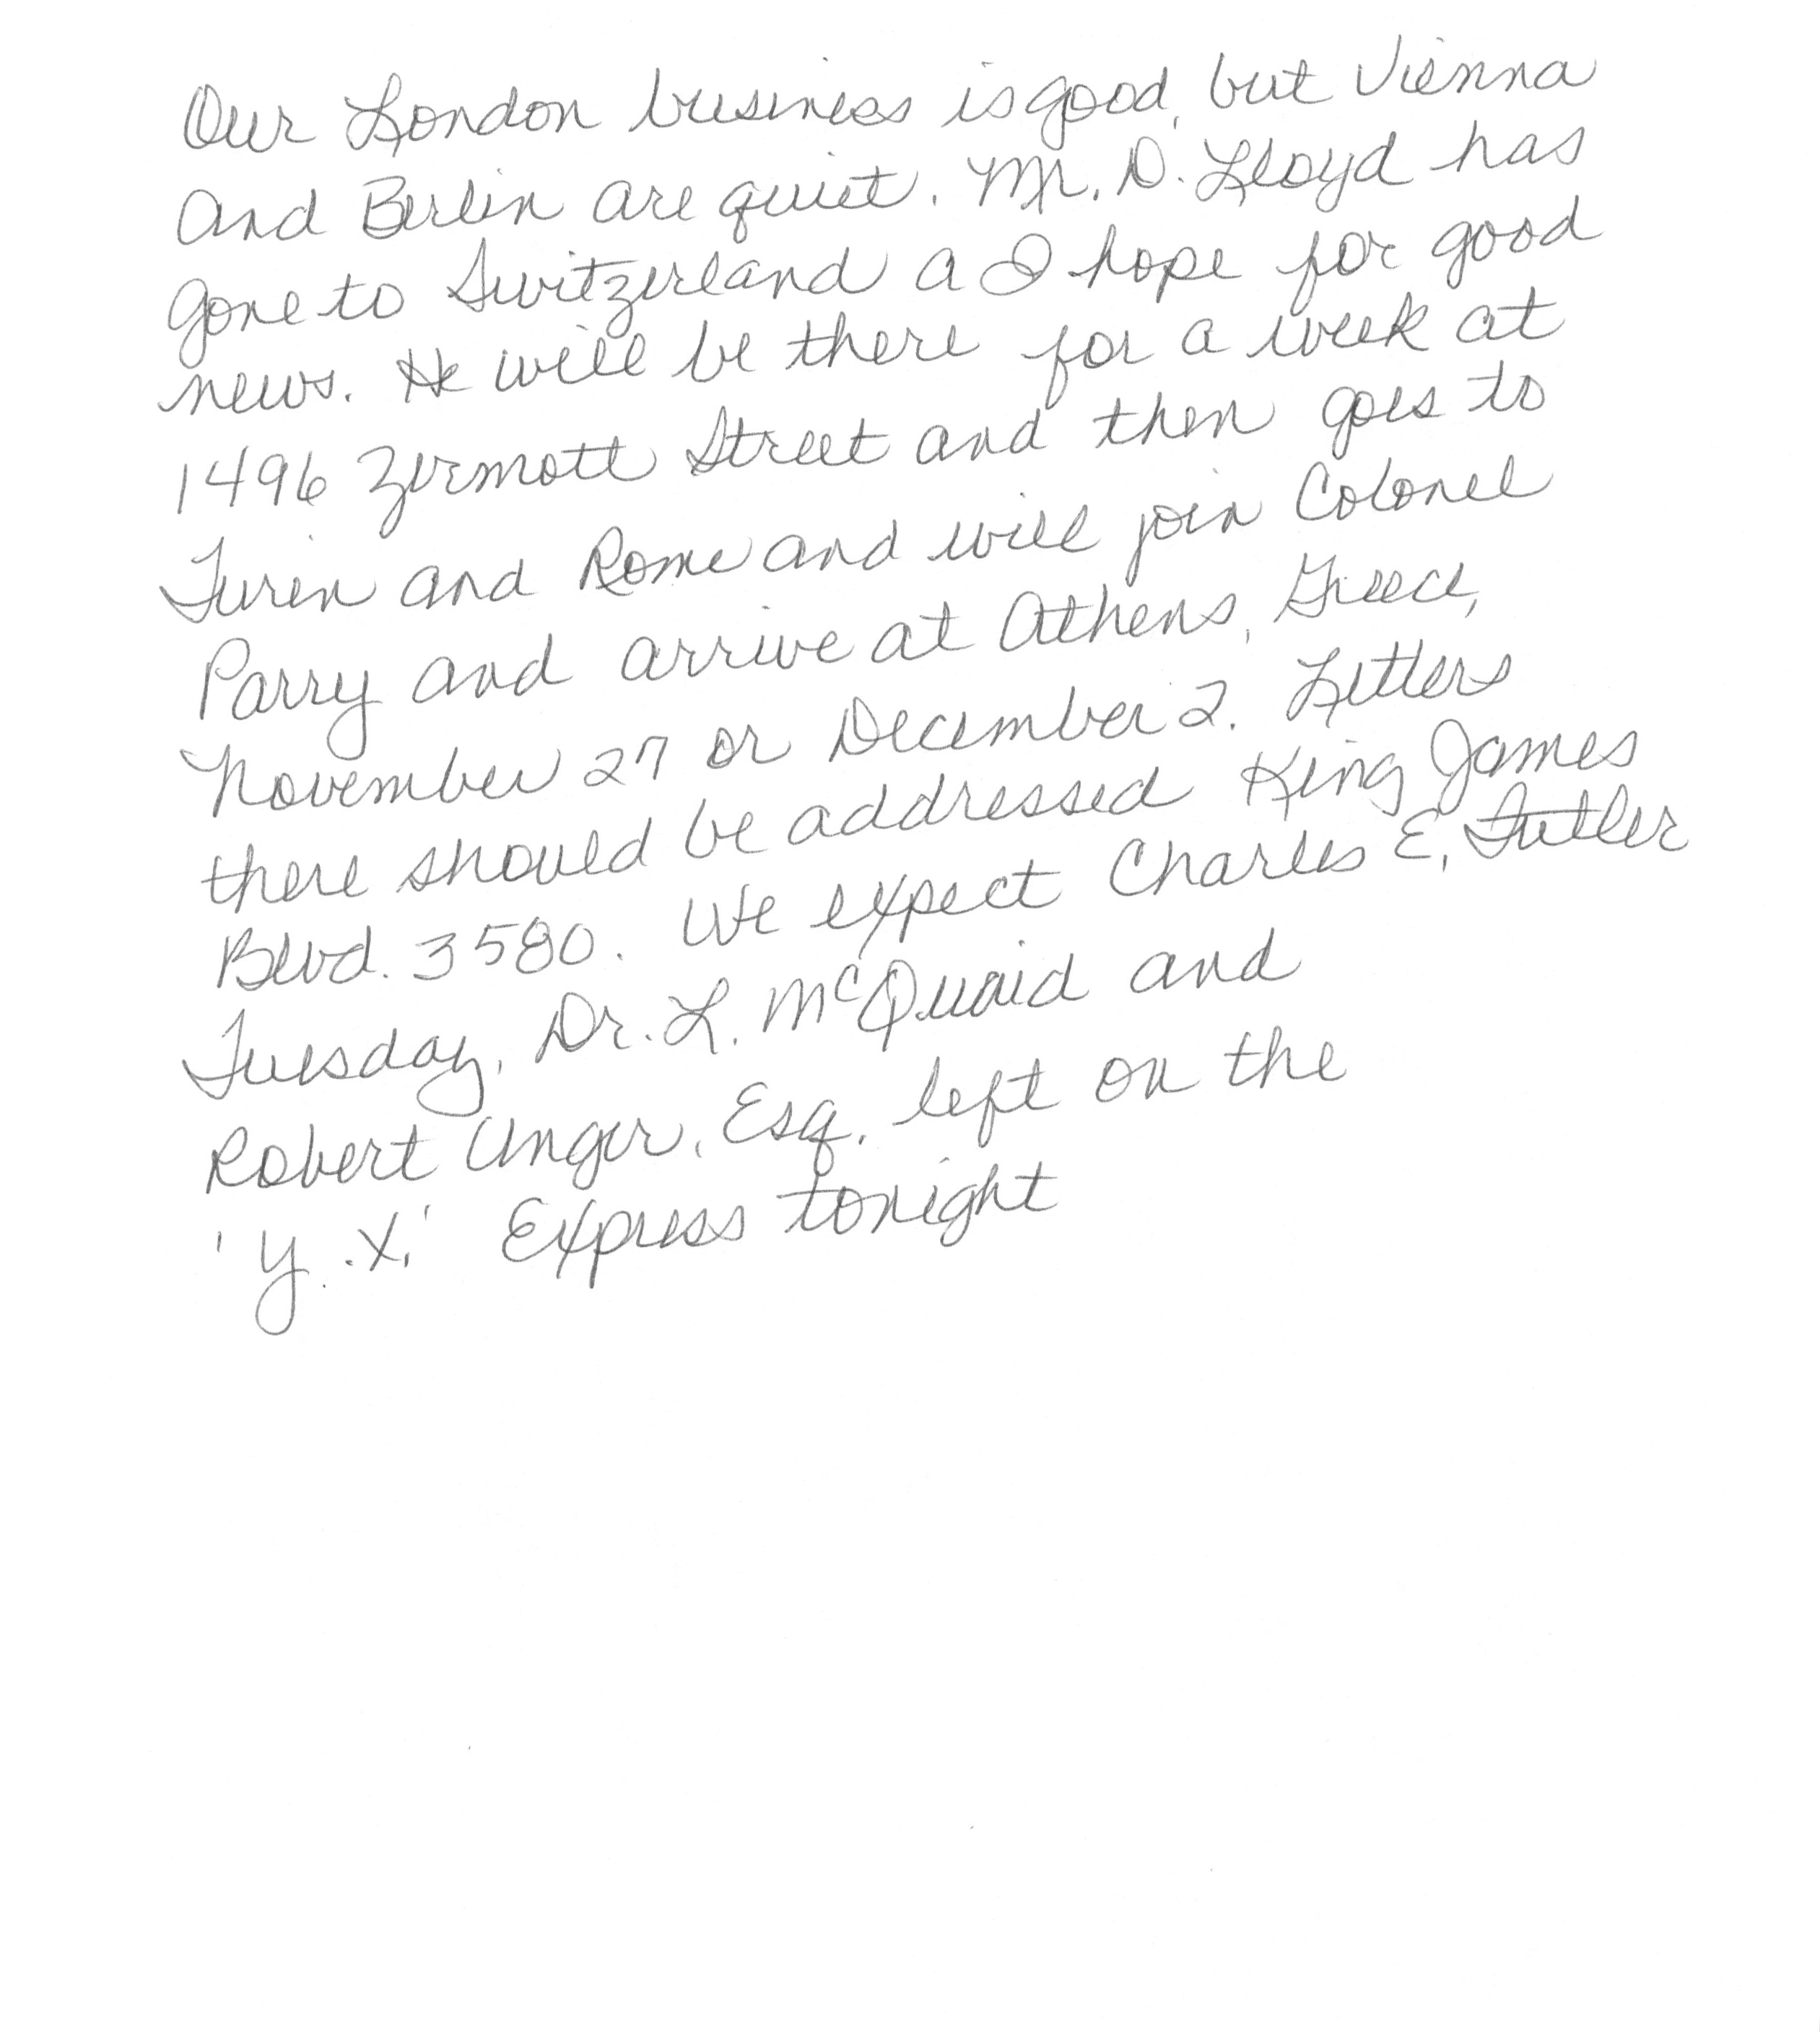 Our London business is good, but Vienna
and Berlin are quiet. Mr. D. Lloyd has
gone to Switzerland a I hope for good
news. He will be there for a week at
1496 Zermott Street and then goes to
Turin and Rome and will join Colonel
Parry and arrive at Athens, Greece,
November 27 or December 2. Letters
there should be addressed King James
Blvd. 3580. We expect Charles E. Futler
Tuesday, Dr. L. McQuaid and
Robert Unger, Esq. left on the
'Y. .X.' Express tonight